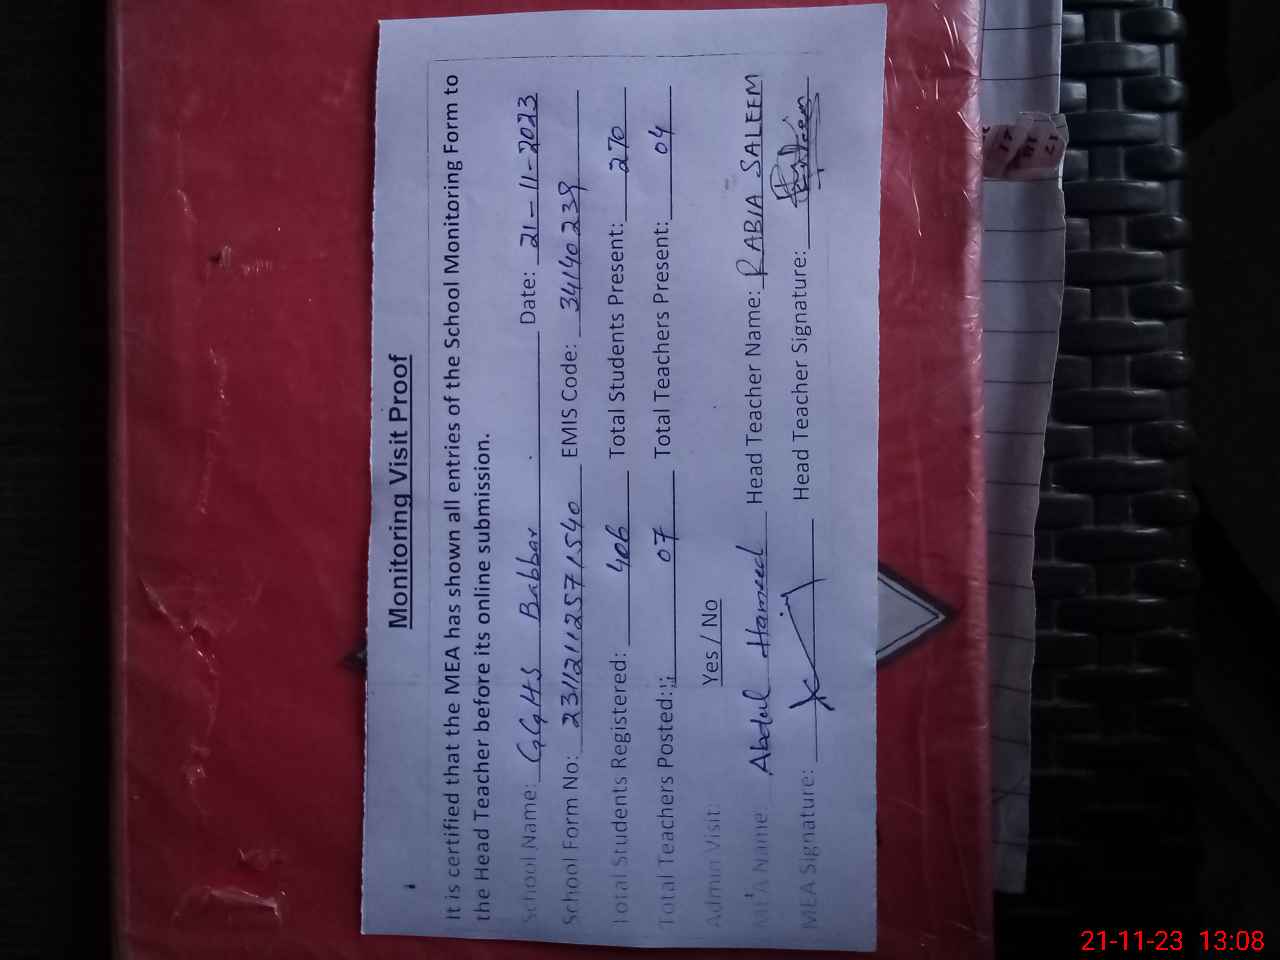 Monitoring Visit Proof
It is certified that the MEA has shown all entries of the School Monitoring Form to
the Head Teacher before its online submission.
School Name: GGHS Babbar Date: 21-11-2023
School Form No: 231121125571540 EMIS Code: 34140239
Total Students Registered: 406 Total Students Present: 270
Total Teachers Posted: 07 Total Teachers Present: 04
Admin Visit: Yes / No
MEA Name: Abdul Hameed Head Teacher Name: RABIA SALEEM
MEA Signature: Head Teacher Signature:
21-11-23 13:08